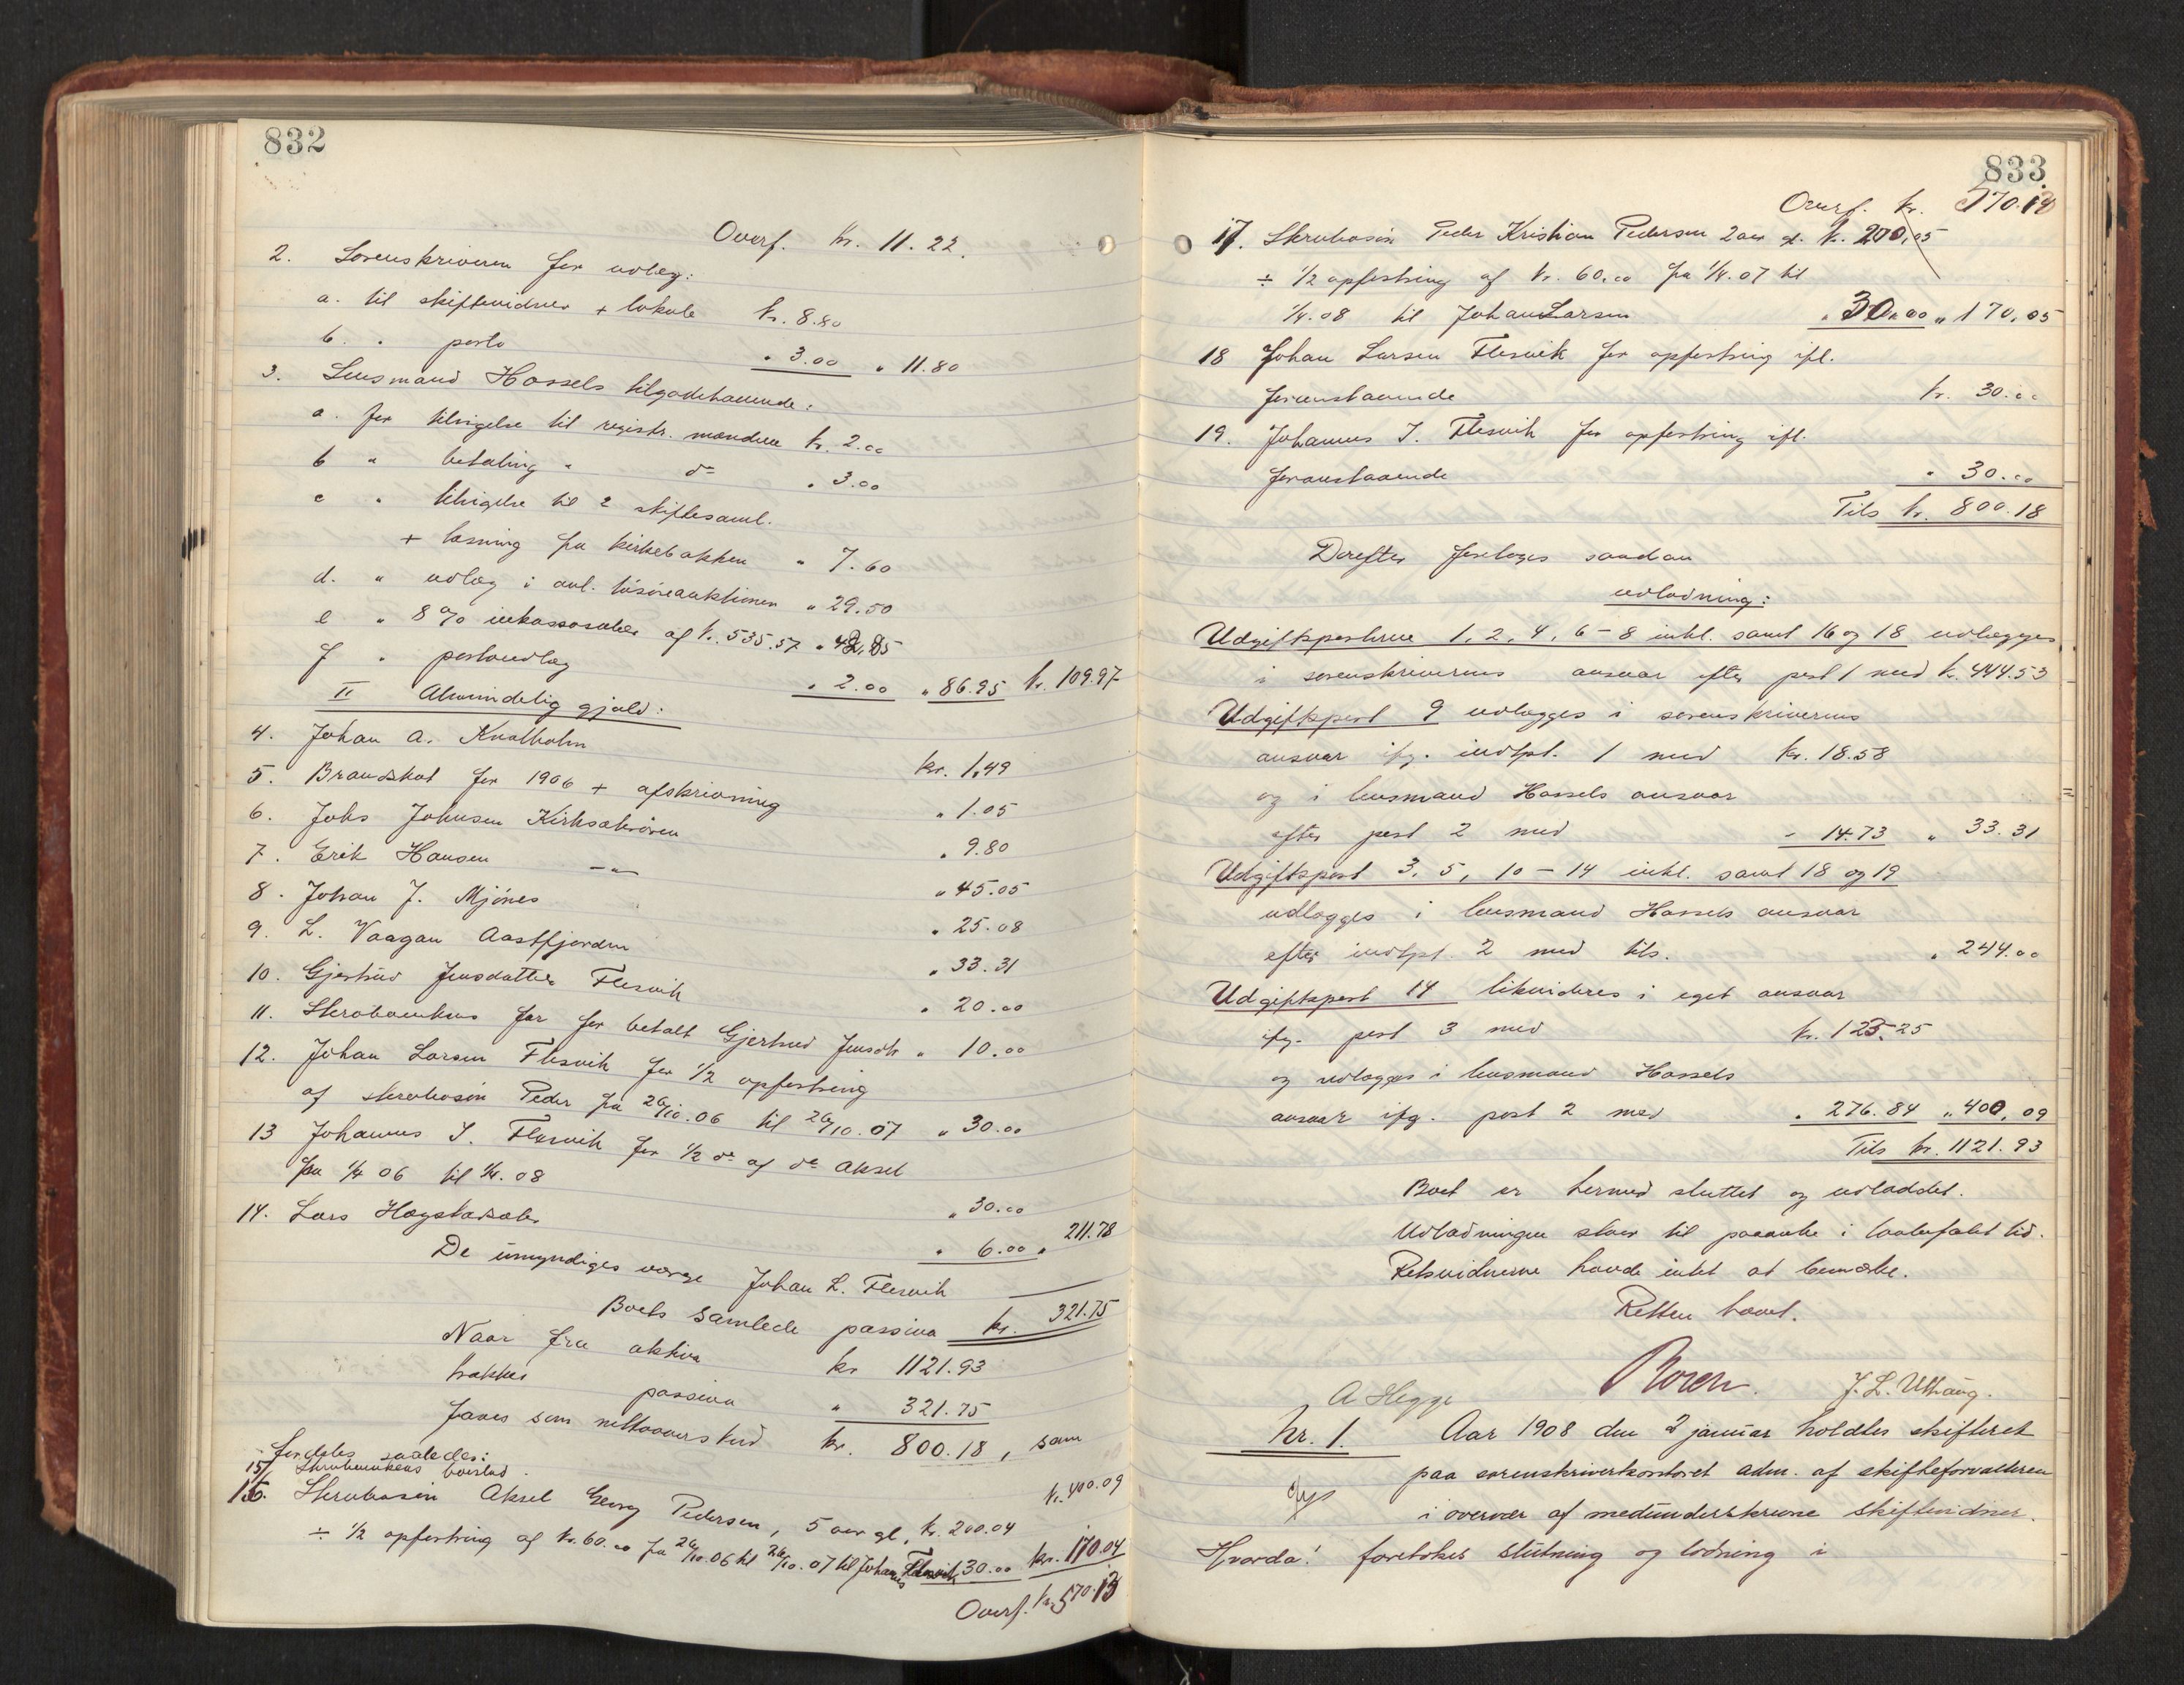 832
Overf. kr. 11.22.
2. Sorenskriveren for udlæg:
a. til skiftevidner + lokale kr. 8.80
b. " porto " 3.00 " 11.80
3. Lensmand Hassels tilgodehavende:
a. for tilsigelse til registr. mændene kr. 2.00
b " betaling " do " 3.00
c " tilsigelse til 2 skiftesaml.
+ læsning fra kirkebakken " 7.60
d. " udlæg i anl. løsøreauktionen " 29.50
e " 8% inkassosalær af kr. 535.57 " 42,85
f " portoudlæg " 2.00 " 86.95 kr. 109.97
II Almindelig gjæld:
4. Johan A. Knalholm kr. 1,49
5. Brandskat for 1906 + afskrivning " 1.05
6. Johs Johnsen Kirksæterøren " 9.80
7. Erik Hansen –"– " 45.05
8. Johan J. Mjönes " 25.08
9. L. Vaagan Aastfjorden " 33.31
10. Gjertrud Jensdatter Flesvik " 20.00
11. Skrøbenkens far for betalt Gjertrud Jensdtr " 10.00
12. Johan Larsen Flesvik for 1/2 opfostring
af skrøbosön Peder fra 26/10.06 til 26/10.07 " 30.00
13 Johannes J. Flesvik for 1/2 do af do Aksel
fra 1/4 06 til 1/4.08 " 30.00
14. Lars Hægstadsæter " 6.00 " 211.78
De umyndiges værge Johan L. Flesvik —
Boets samlede passiva kr. 321.75
Naar fra aktiva kr 1121.93
trækkes passiva " 321.75
faaes som nettooverskud kr. 800.18, som
fordeles saaledes:
15/ boeslod. kr. 400.09
16. Aksel Georg Pedersen, 5 aar gl. kr. 200.04
÷ 1/2 opfostring af kr. 60.00 fra 26/10.06 til 26/10.07 til Johannes Flesvik 30.00 kr. 170.04
Overf. kr. 570.13
833
Overf. kr. 570.13
17. Peder Kristian Pedersen 2 aar gl. kr. 200,05
÷ 1/2 opfostring af kr. 60.00 fra 1/4.07 til
1/4.08 til Johan Larsen " 30.00 " 170,05
18 Johan Larsen Flesvik for opfostring ifl.
foranstaaende kr. 30.00
19. Johannes J. Flesvik for opfostring ifl.
foranstaaende " 30.00
Tils kr. 800.18
Derefter foretoges saadan
udlodning:
Udgiftsposterne 1, 2, 4, 6–8 inkl. samt 16 og 18 udlægges
i sorenskriverens ansvar efter post 1 med kr. 444.53
Udgiftspost 9 udlægges i sorenskriverens
ansvar ifg. indtpt. 1 med kr. 18.58
og i lensmand Hassels ansvar
efter post 2 med " 14.73 " 33.31
Udgiftspost 3, 5, 10–14 inkl. samt 18 og 19
udlægges i lensmand Hassels ansvar
efter indtpt. 2 med tils. " 244.00
Udgiftspost 14 likvideres i eget ansvar
ifg. post 3 med kr. 123.25
og udlægges i lensmand Hassels
ansvar ifg. post 2 med " 276.84 " 400,09
Tils kr. 1121.93
Boet er hermed sluttet og udloddet.
Udlodningen staar til paaanke i lovbefalet tid.
Retsvidnerne havde intet at bemærke.
Retten hævet.
A Hegge J. L. Uthaug.
Nr. 1. Aar 1908 den 2 januar holdtes skifteret
paa sorenskriverkontoret adm. af skifteforvalteren
i overvær af medunderskrevne skiftevidner.
Hvorda: foretokes slutning og lodning i